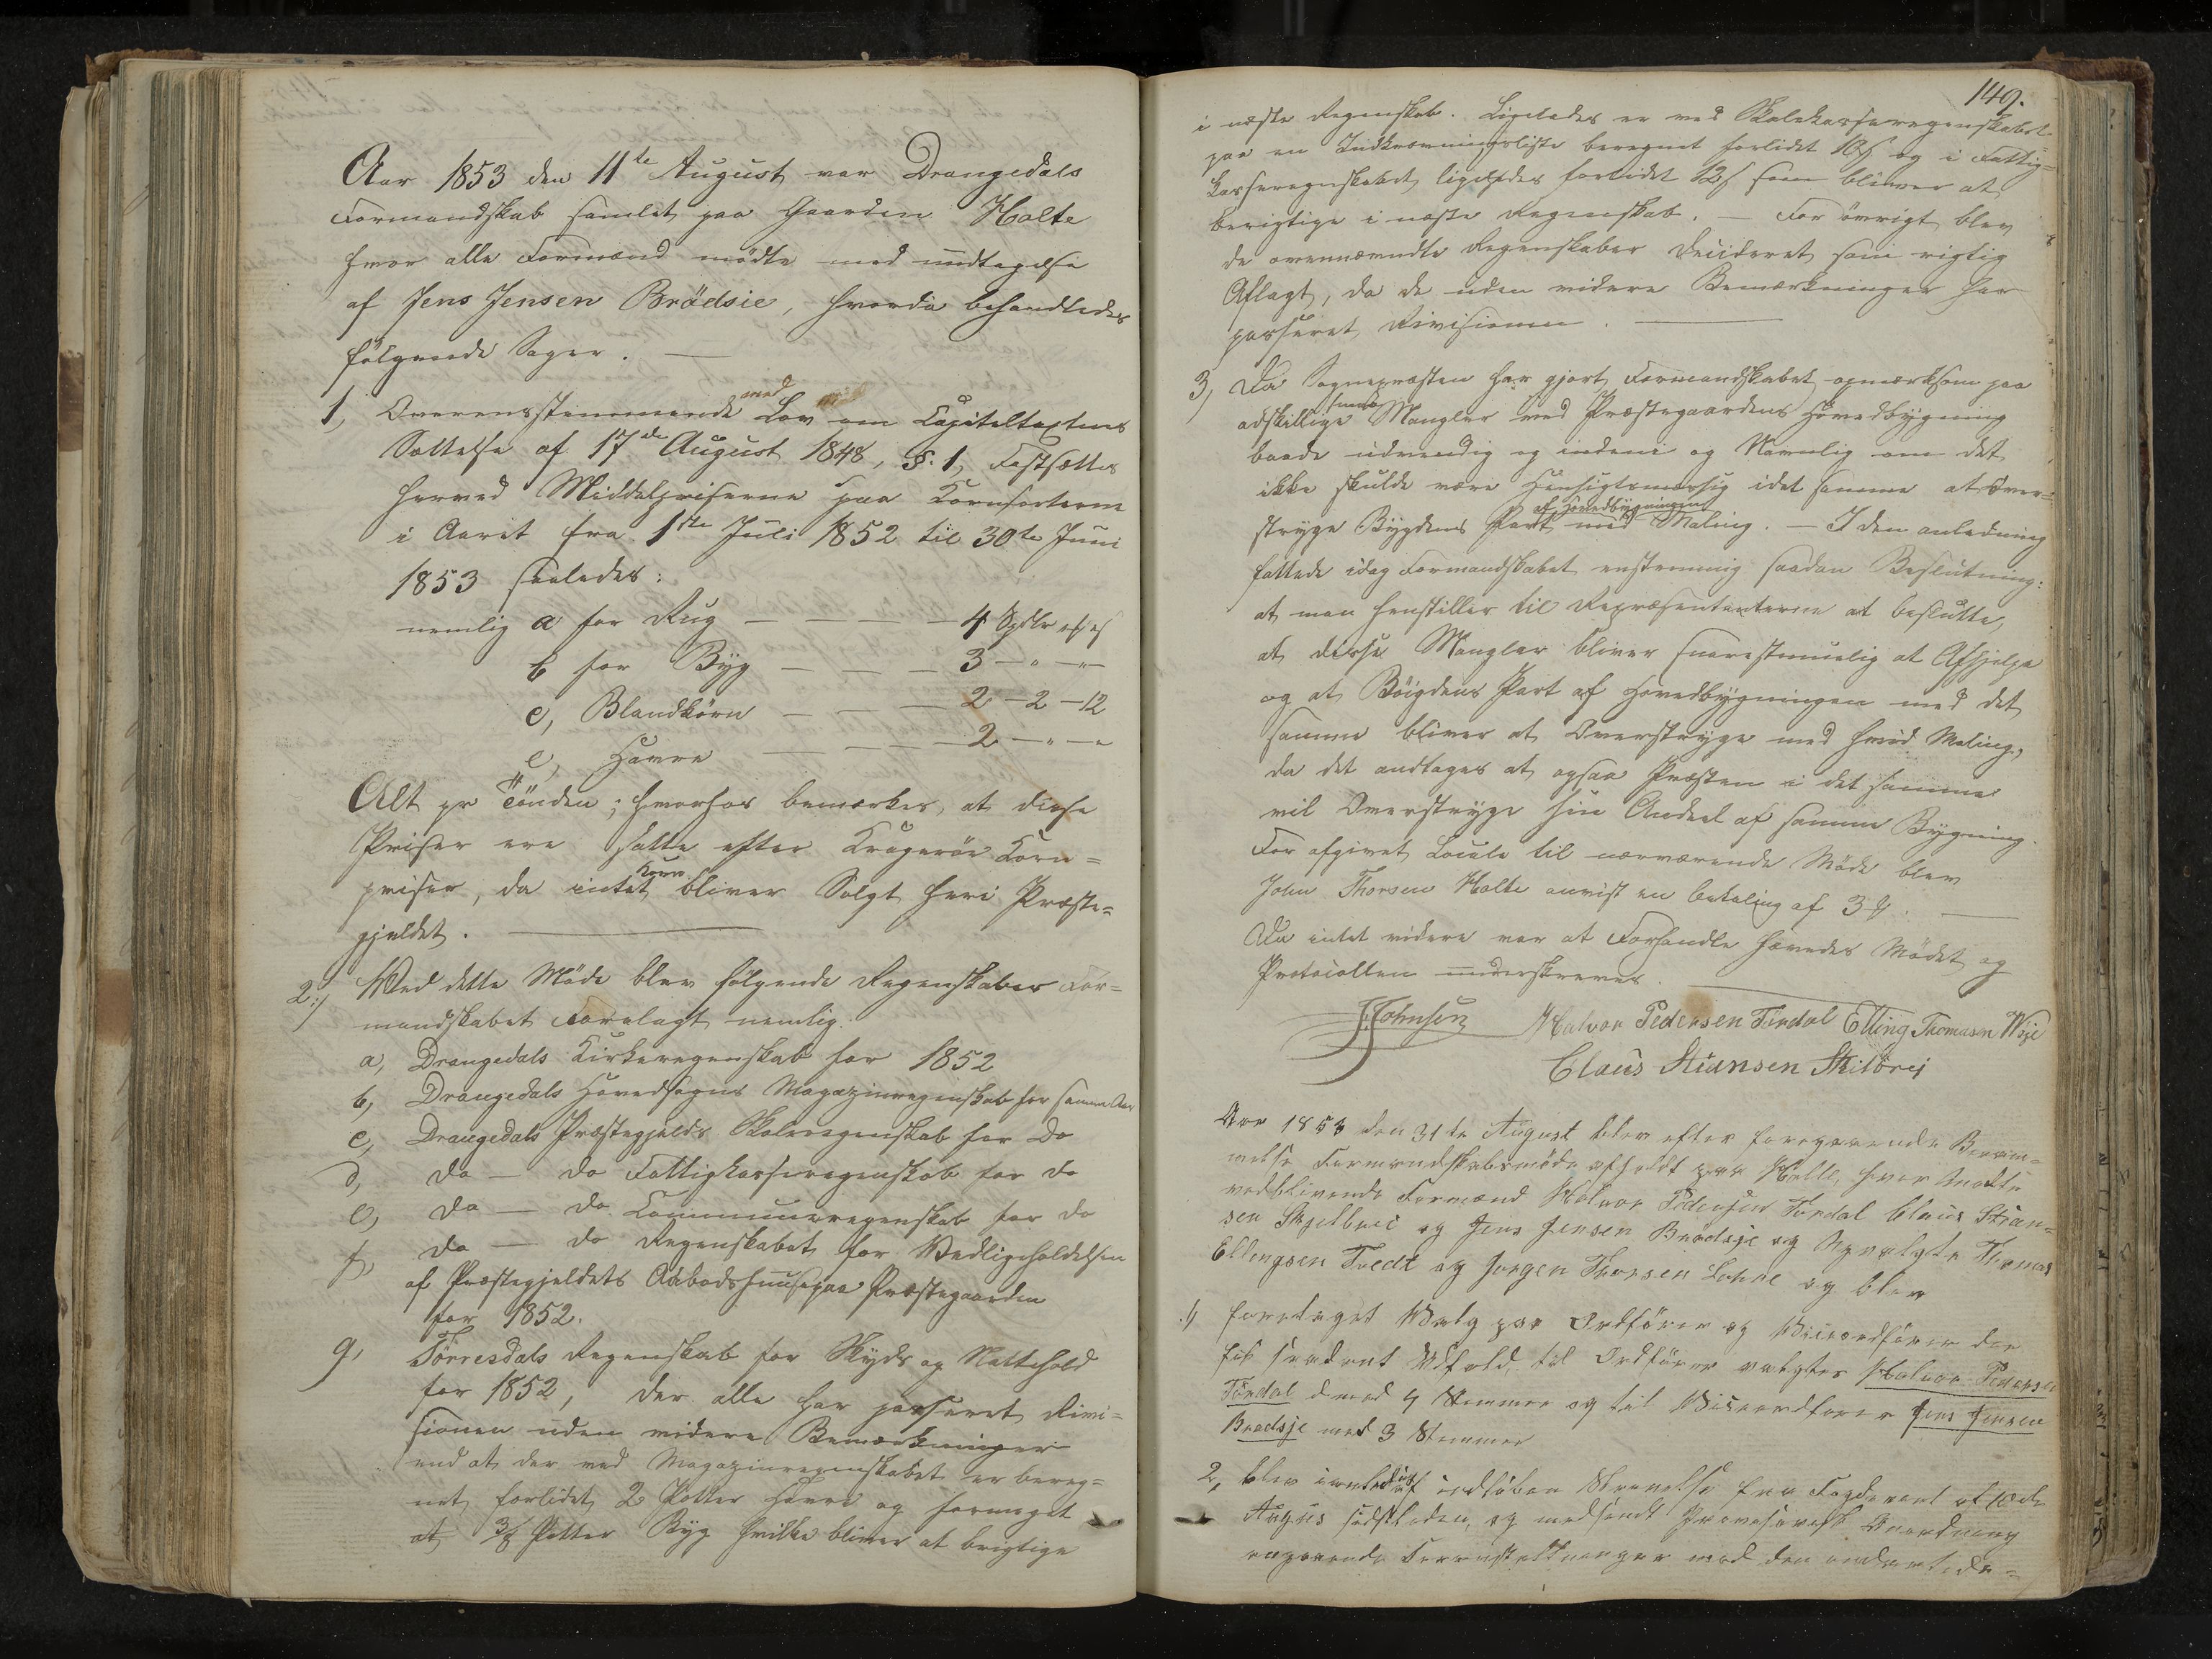 Aar 1853 den 11te August var Drangedals
Formandskab samlet paa Gaarden Holte
hvor alle Formænd mødte med undtagelse
af Jens Jensen Brødsie, hvorda behandledes
følgende Sager. —
1, Overensstemmende med Lov om Capiteltaxtens
Sættelse af 17de August 1848, §. 1, Fastsættes
herved Middelpriserne paa Kornsorterne
i Aaret fra 1ste Juli 1852 til 30te Juni
1853 saaledes:
nemlig a for Rug — — — — 4 Spdlr
b for Byg — — — 3 — " — "
c, Blandkorn — — — 2 — 2 — 12
e, Havre — — — 2 — " — "
Alt pr Tønden; hvorhos bemærkes, at disse
Priser ere satte efter Kragerøe Korn=
priser, da intet Korn bliver Solgt heri Præste=
gjeldet. —
2:/ Ved dette Møde blev følgende Regenskaber For=
mandskabet Forelagt nemlig:
a, Drangedals Kirkeregenskab for 1852
b, Drangedals Hovedsogns Magazinregenskab for samme Aar
c, Drangedals Præstegjelds Skoleregenskab for Do
d, Do — Do Fattigkasseregenskab for Do
e, Do — Do Communeregenskab for Do
f, Do — Do Regenskabet for Vedligeholdelsen
af Præstegjeldets Aabodshuuse paa Præstegaarden
for 1852.
g, Tørresdals Regenskab for Skyds og Nattehold
for 1852, der alle har passeret Rivi=
sionen uden videre Bemærkninger
end at der ved Magazinregenskabet er bereg=
net forlidet 2 Potter Havre og formeget
at 3/8 Potter Byg hvilke bliver at brigtige
149.
i næste Regenskab. Ligeledes er ved Skolekasseregenskabet
paa en Indkrævningsliste beregnet forlidet 10 ß og i Fattig=
kasseregnskabet ligeledes forlidet 12 ß som bliver at
berigtige i næste Regenskab. — For øvrigt blev
de ovennævndte Regenskaber Decideret som rigtig
Aflagt, da de uden videre Bemærkninger har
passeret Rivisionen. —
3, Da Sognepræsten har gjort Formandskabet opmærksom paa
adskillige smaae Mangler ved Præstegaardens Hovedbygning
baade udvendig og indeni og Navnlig om det
ikke skulde være Hensigtsmæssig idet samme at Over=
stryge Bygdens Part af Hovedbygningen med Maling. — I den anledning
fattede idag Formandskabet enstemmig saadan Beslutning:
at man henstiller til Repræsentanterne at beslutte,
at disse Mangler bliver snarestmuelig at Afhjelpe
og at Bøigdens Part af Hovedbygningen med det
samme bliver at Overstryge med hvid Maling,
da det andtages at ogsaa Præsten i det samme
vil Overstryge sin Andeel af samme Bygning.
For afgivet Locale til nærværende Møde blev
John Thorsen Holte anvist en betaling af 3 ₰. —
Da intet videre var at Forhandle hævedes Mødet og
Protocollen underskreves. —
J Johnsen Halvor Pedersen Tørdal Elling Thomasen Wøje
Claus Stiansen Skilbrej
Aar 1853 den 31te August blev efter foregaaende Beram=
melse Formandskabsmøde afholdt paa Holte, hvor Mødte
vedblivende Formænd Halvor Pedersen Tørdal Claus Stian=
sen Skjelbrei og Jens Jensen Brødsje og Nyvalgte Thomas
Ellingsen Tvedt og Jørgen Thorsen Lohne og blev
1, foretaget Valg paa Ordfører og Viceordfører der
fik saadant Udfald, til Ordfører valgtes Halvor Pedersen
Tørdal med 4 Stemmer og til Viceordfører Jens Jensen
Brødsje med 3 Stemmer
2, blev indløben Skrivelse fra Fogden af
August sidstleden, og medsendt Anordning
angaaende med den